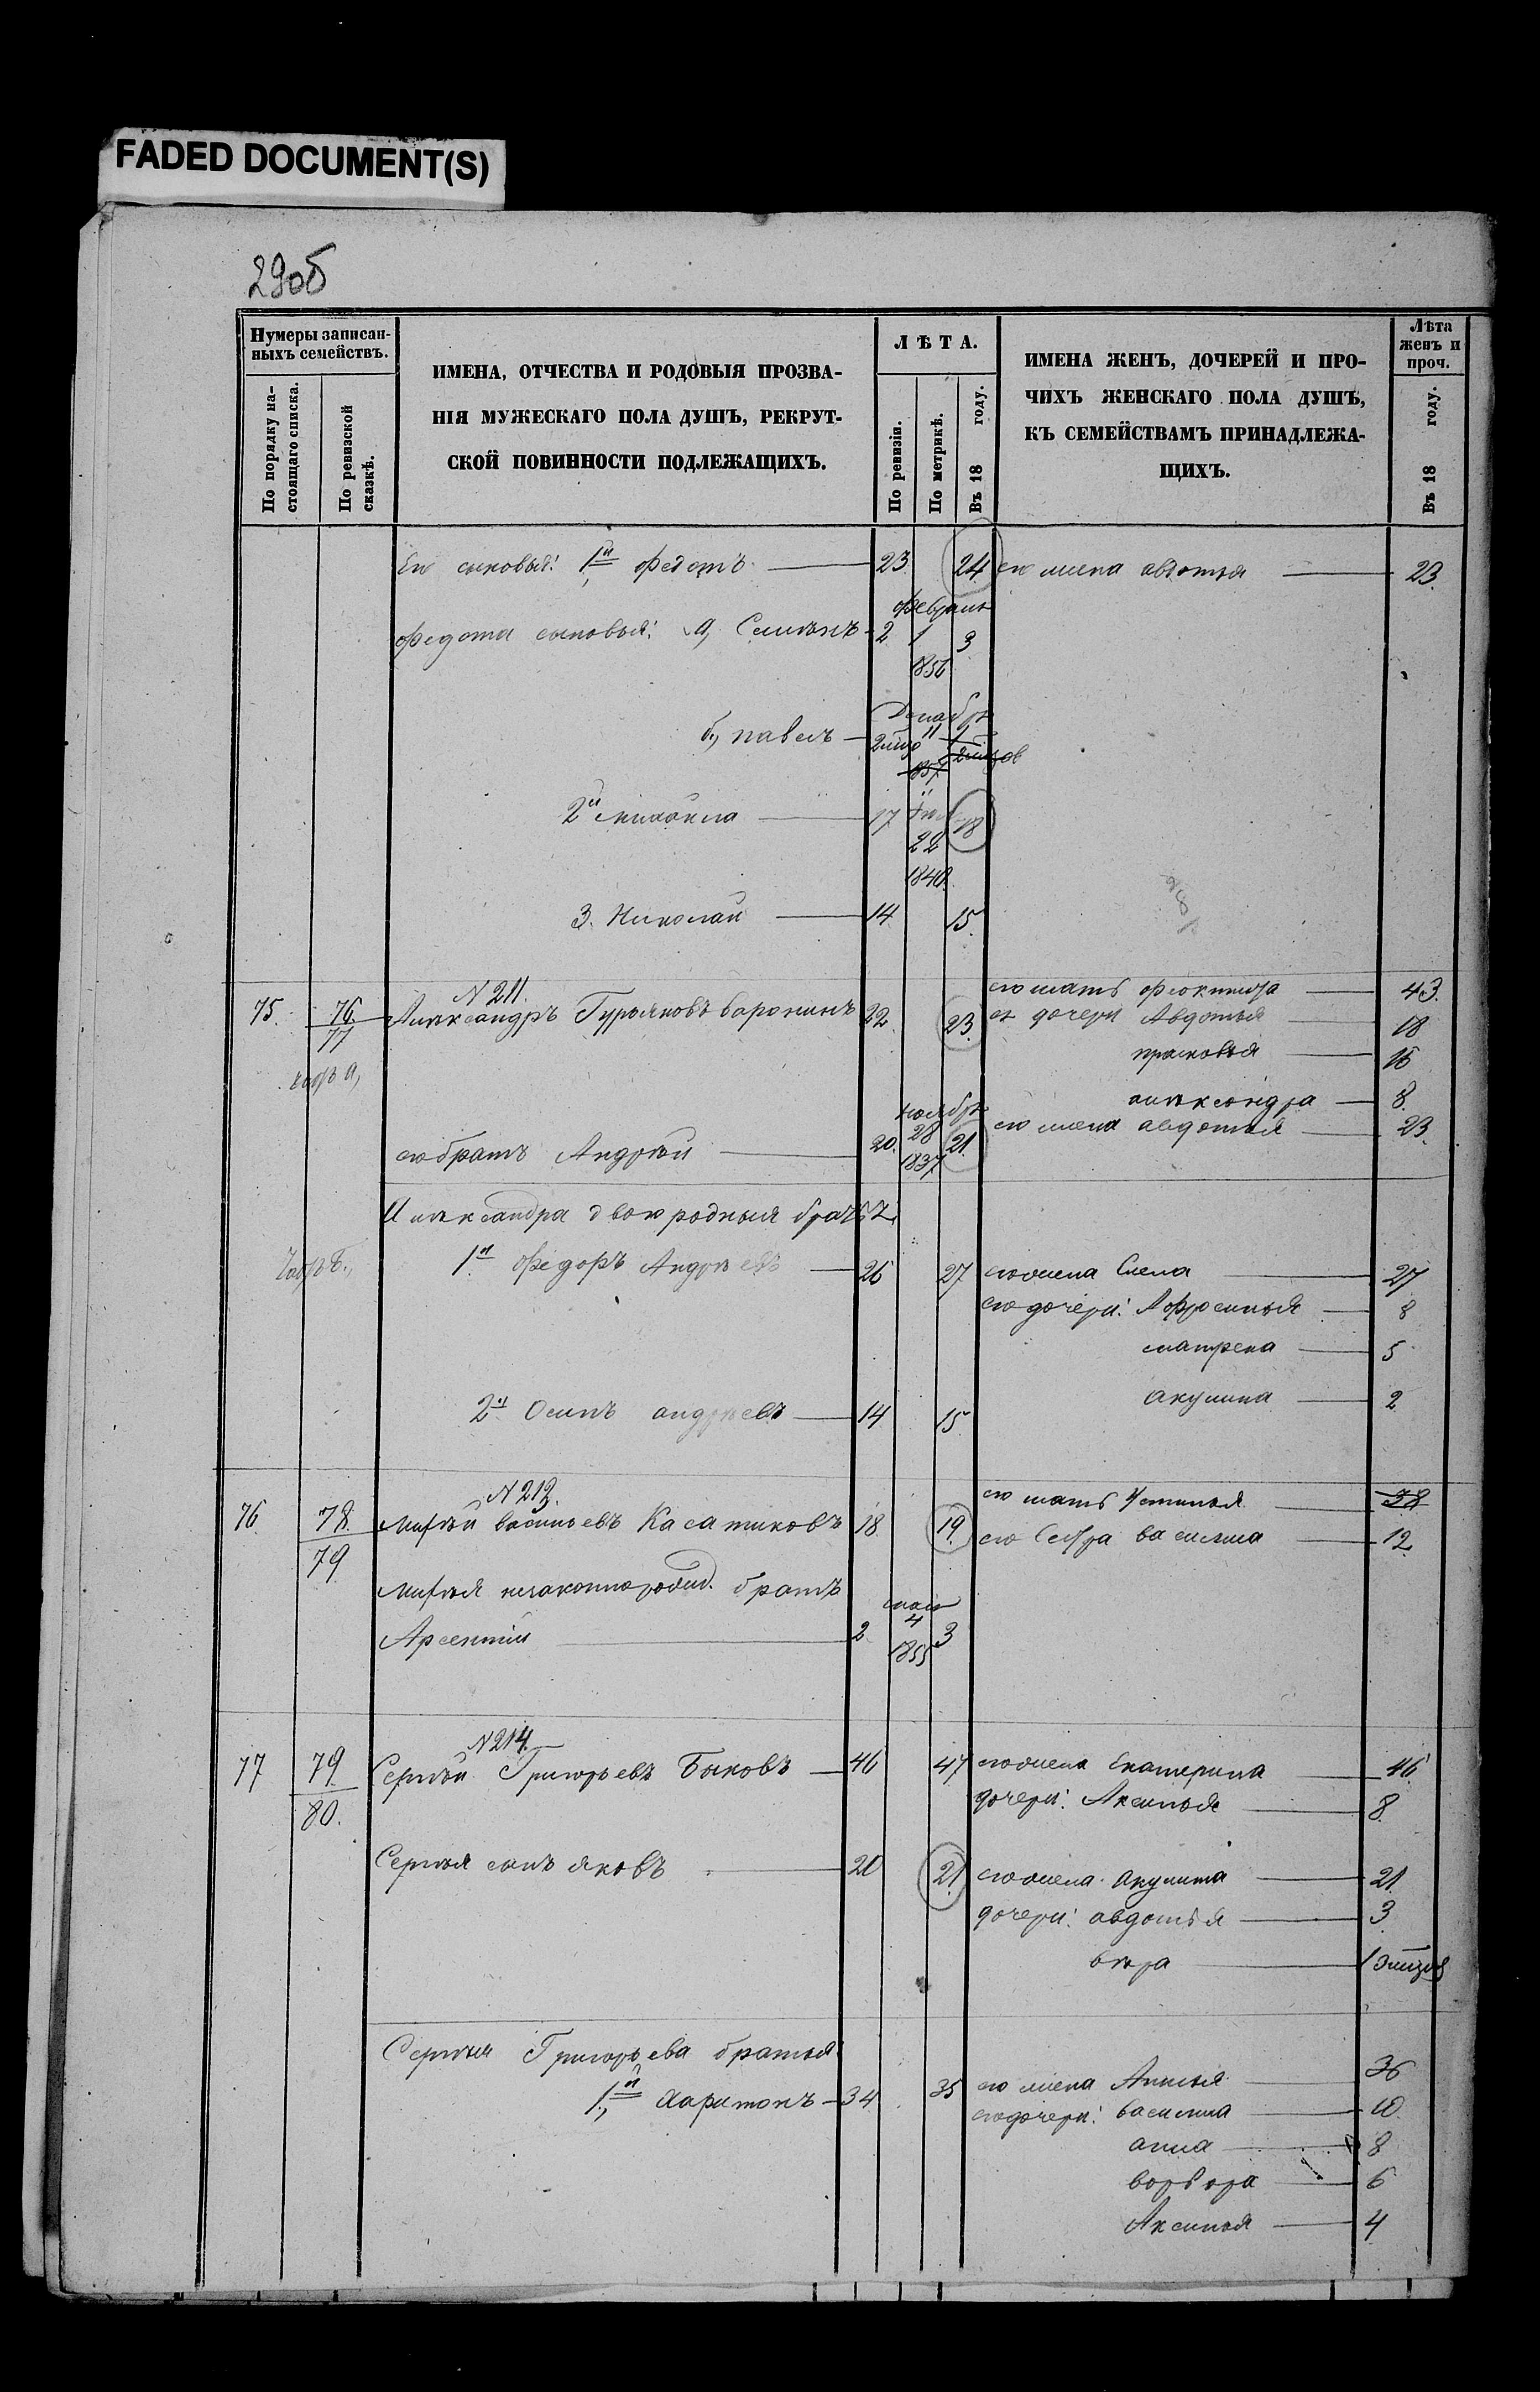 FADED DOCUMENT(S)
29об
Нумеры записан-
ныхъ семействъ.
По порядку на-
стоящаго списка.
По ревизской
сказкѣ.
ИМЕНА, ОТЧЕСТВА И РОДОВЫЯ ПРОЗВА-
НІЯ МУЖЕСКАГО ПОЛА ДУШЪ, РЕКРУТ-
СКОЙ ПОВИННОСТИ ПОДЛЕЖАЩИХЪ.
ЛѢТА.
По ревизіи.
По метрикѣ.
Въ 18 году.
ИМЕНА ЖЕНЪ, ДОЧЕРЕЙ И ПРО-
ЧИХЪ ЖЕНСКАГО ПОЛА ДУШЪ,
КЪ СЕМЕЙСТВАМЪ ПРИНАДЛЕЖА-
ЩИХЪ.
Лѣта
женъ и
проч.
Въ 18 году.
Его сыновья: 1й Федотъ 23 24 его жена авдотья 23.
Февраля
Федота сыновья: а, Семѣнъ 2 1 3
1856
Декабря
б, павелъ 11
1857
2й михайла 17 18
22
1840.
3. Николай 14 15
N 211.
75. 76. Александръ Гурьяновъ варонинъ 22 23. его мать феоктиста 43.
77 ея дочери Авдотья 18
прасковья 16
александра 8.
ноября
его братъ Андрѣй 20. 28 21. его жена авдотья 23.
1837
Александра двоюродныя братья.
1й Федоръ Андрѣевъ 26 27 его жена Елена 27
его дочери: Афросинья 8
матрена 5
акулина 2
2й Осипъ андрѣевъ 14 15
N 213.
76. 78. васильевъ Касатиковъ 18 19. его мать Устинья 38
79 его Сестра василиса 12.
незаконнорожд. братъ
мая
Арсентій 2 4 3
1855
N 214.
77 79. Сергѣй Григорьевъ Быковъ 46 47 его жена Екатерина 46.
80. дочери: Аксинья 8.
Сергѣя сынъ яковъ 20 21. его жена акулина 21.
дочери: авдотья 3
вѣра
Сергѣя Григорьева братья
1й Харитонъ 34 35 его жена Анисья 36
его дочери: василиса 10.
анна 8
ворвора 6
Аксинья 4